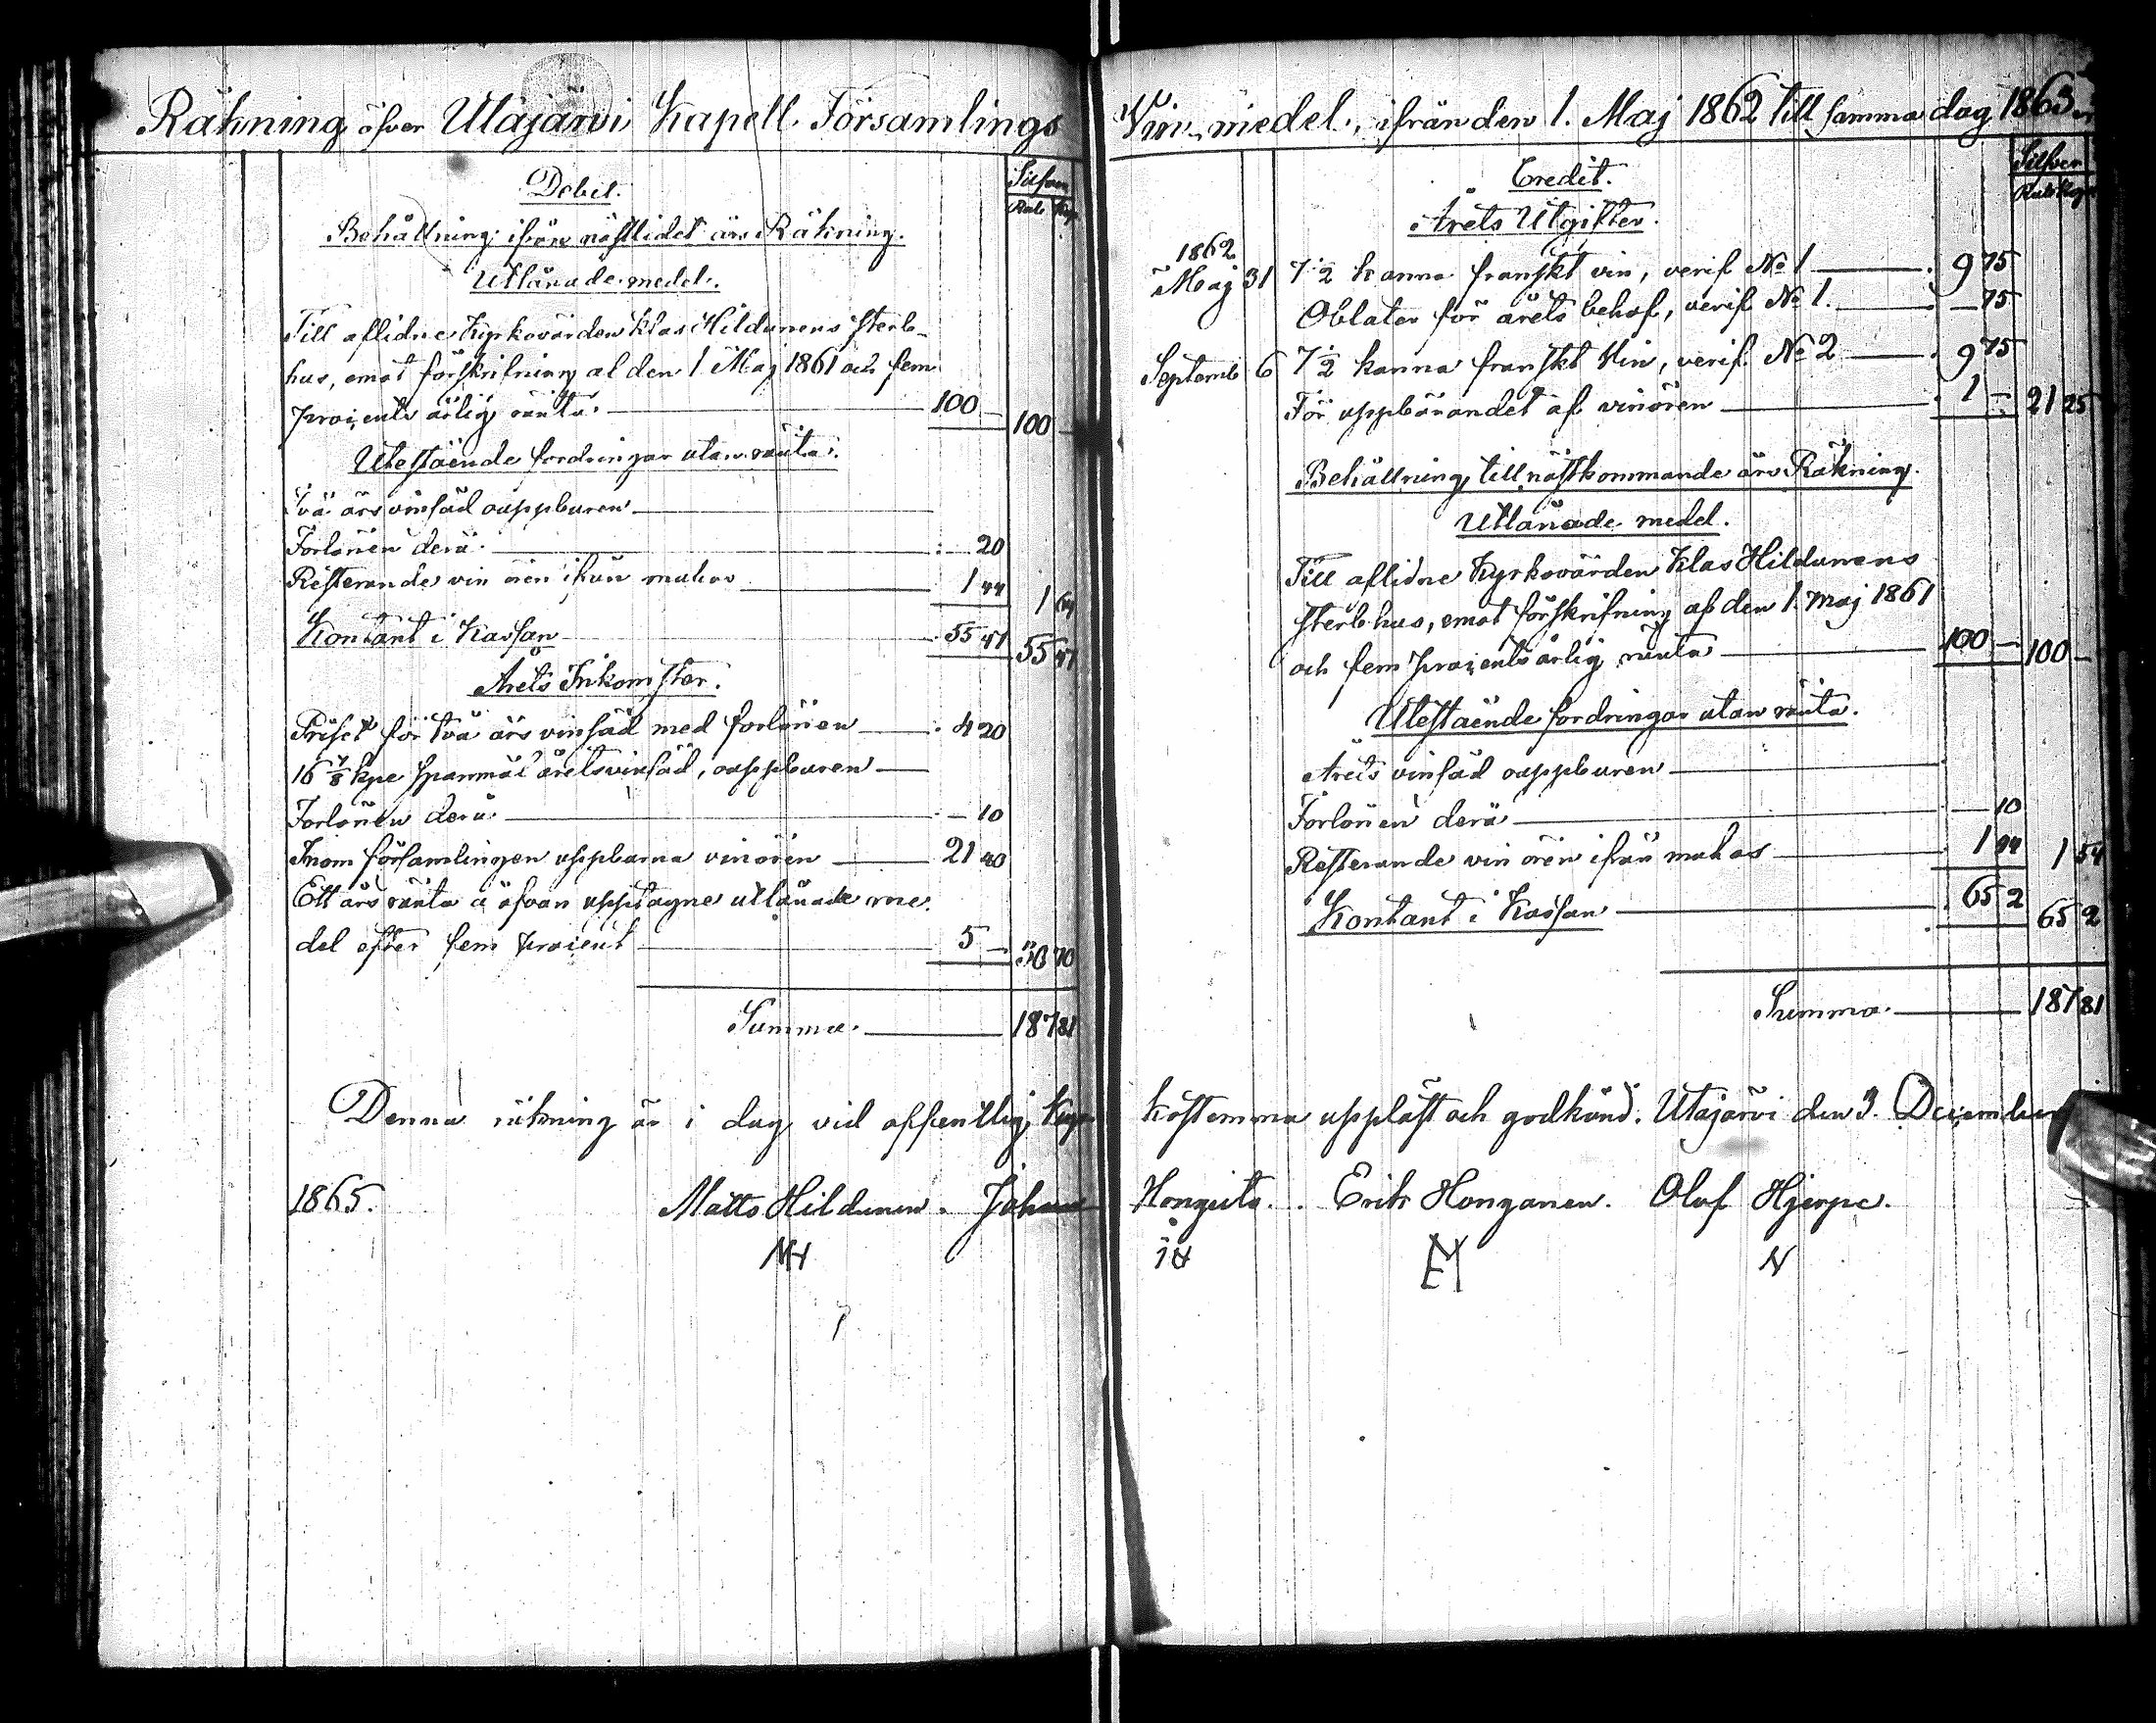 Räkning öfver Utajärvi Kapell Församlings
Debet.
Silfver
Rub. Kop.
Behållning ifrån nästlidet års Räkning.
Utlånade medel.
Till aflidne Kyrkovärden Klas Hildunens sterb-
hus, emot förskrifning af den 1 Maj 1861 och fem
procents årlig ränta. 100 — 100 —
Utestående fordringar utan ränta.
Två års vinsäd ouppburen
Forlönen derå 20
Resterande vin ören ifrån muhos 1 44 1 64
Kontant i Kassan 55 47 55 47
Årets Inkomster.
Priset för två års vinsäd med forlönen 4 20
16 7/8 kpe spanmål årets vinsäd, ouppburen
Forlönen derå — 10
Inom församlingen uppburna vinören 21 40
Ett års ränta å ofvan upptagne utlånade me-
del efter fem procent 5 — 30 70
Summa. 187 81
Denna räkning är i dag vid offentlig Kyr-
1865. Matts Hildunen. Johan
MH
Vin-medel, ifrån den 1. Maj 1862 till samma dag 1863.
Credit.
Silfver
Rub. Kop.
Årets Utgifter.
1862
Maj 31 7 1/2 kanna franskt vin, verif. No 1 9 75
Oblater för årets behof, verif. No 1. — 75
Septemb 6 7 1/2 kanna franskt Vin, verif. No 2 9 75
För uppbärandet af vinören 1 — 21 25
Behållning till nästkommande års Räkning.
Utlånade medel.
Till aflidne Kyrkovärden Klas Hildunens
sterbhus, emot förskrifning af den 1. maj 1861
och fem procents årlig ränta 100 — 100 —
Utestående fordringar utan ränta.
Årets vinsäd ouppburen
Forlönen derå — 10
Resterande vin ören ifrån muhos 1 44 1 54
Kontant i Kassan 65 2 65 2
Summa. 187 81
kostemma uppläst och godkänd. Utajärvi den 3. December
Erik Honganen. Olof Hjerpe.